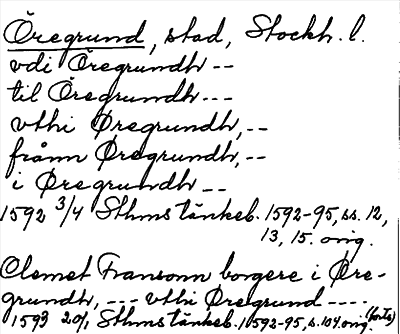 Öregrund, stad, Stockh. l.
vdi Öregrundh --
til Öregrundh ---
vthi Øregrundh, --
frånn Øregrundh, --
i Øregrundh --
1592 3/4 Sthms tänkeb. 1592-95, ss. 12,
13, 15. orig.
Clemet Fransonn borgere i Øre-
grundh, --- vthi Øregrund ----
1593 20/1 Sthms tänkeb. 1592-95, s. 104 orig. (forts)